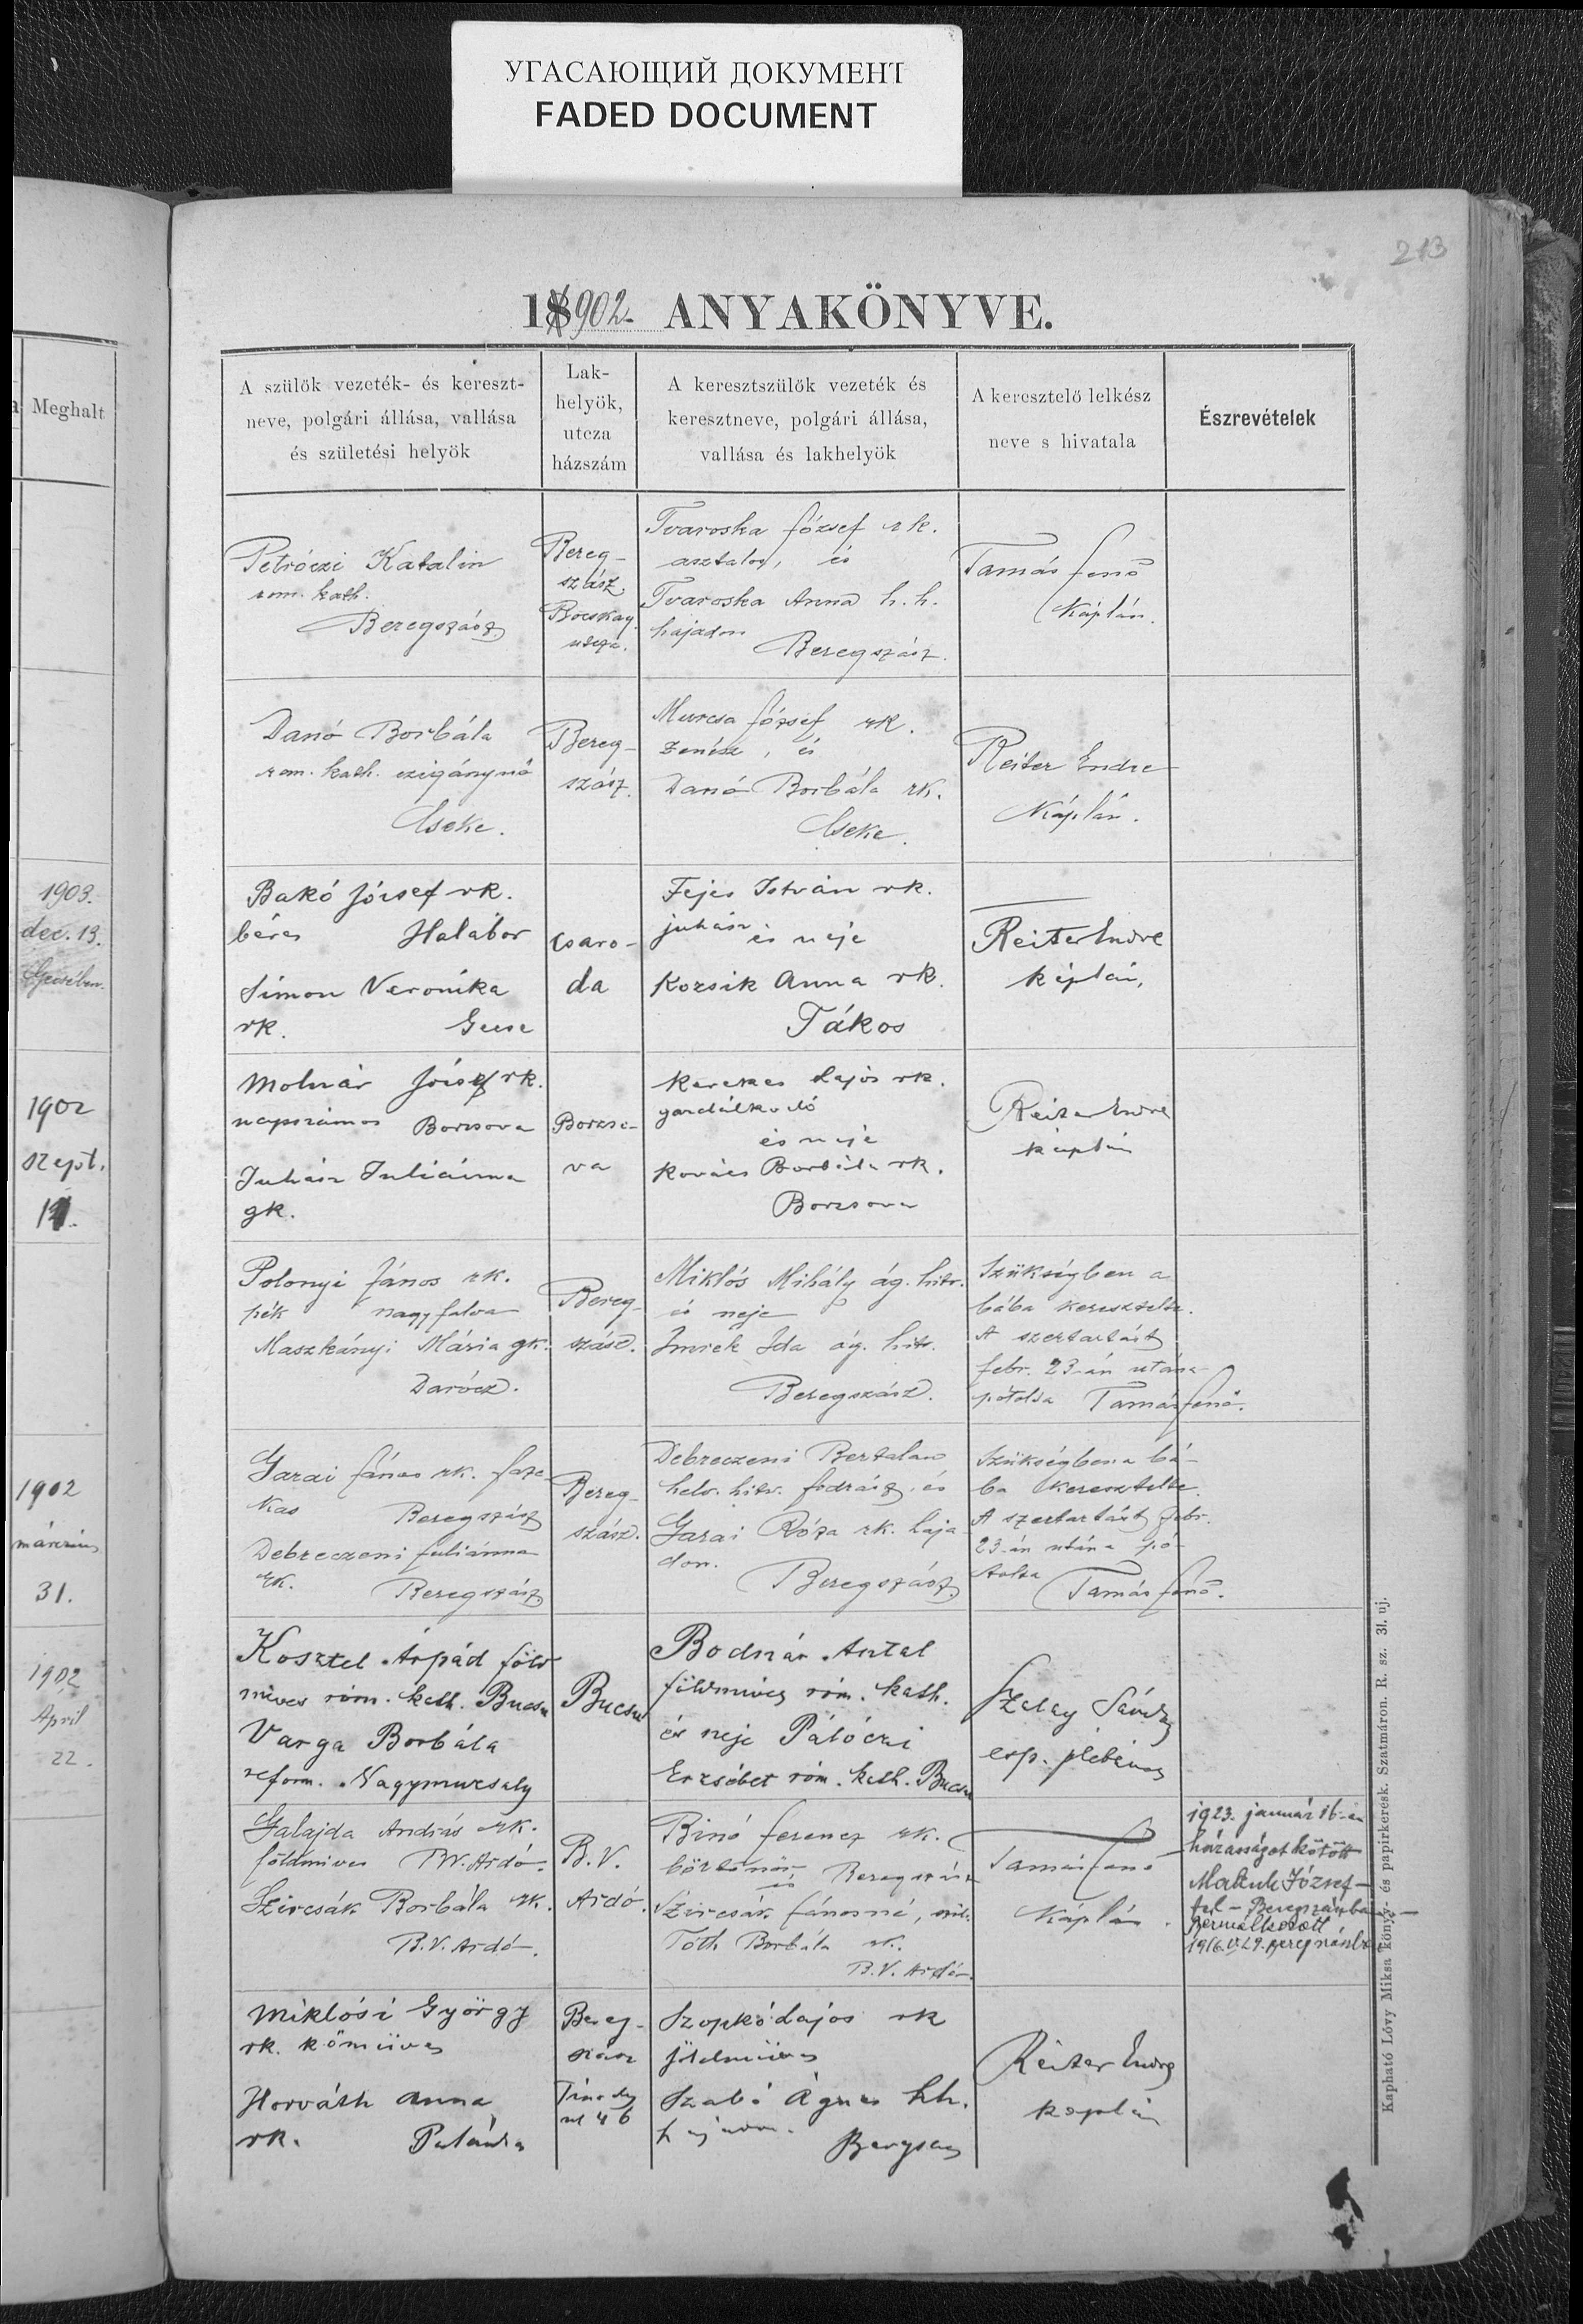 УГАСАЮЩИЙ ДОКУМЕНТ
FADED DOCUMENT
213
1902. ANYAKÖNYVE.
Meghalt
1903.
dec. 13.
Gecsében.
1902
szept.
1902
márczius
31.
1902
April
22.
A szülök vezeték- és kereszt-
neve, polgári állása, vallása
és születési helyök
Lak-
helyök,
utcza
házszám
A keresztszülök vezeték és
keresztneve, polgári állása,
vallása és lakhelyök
A keresztelő lelkész
neve s hivatala
Észrevételek
Petróczi Katalin
rom. kath.
Beregszász
Bereg-
szász
Bocskay
utcza.
Tvaroska József rk.
asztalos, és
Tvaroska Anna h. h.
hajadon
Beregszász.
Tamás Jenő
Káplán.
Danó Borbála
rom. kath. czigánynő
Cseke.
Bereg-
szász.
Murcsa József rk.
zenész, és
Danó Borbála rk.
Cseke.
Reiter Endre
Káplán.
Bakó József rk.
béres Halábor
Simon Veronika
rk. Gecse
Csaro-
da
Fejes István rk.
juhász és neje
Kozsik Anna rk.
Tákos
Reiter Endre
káplán,
Molnár József rk.
napszámos Borzsova
Juhász Juliánna
gk.
Borzso-
va
Kerekes Lajos rk.
gazdálkodó
és neje
Kovács Borbála rk.
Borzsova
Reiter Endre
káplán
Polonyi János rk.
pék nagyfalva
Maszkányi Mária gk.
Darócz.
Bereg-
szász.
Miklós Mihály ág. hitv.
és neje
Imrek Ida ág. hitv.
Beregszász.
Szükségben a
bába keresztelte.
A szertartást
febr. 23-án utána
pótolta Tamás Jenő.
Garai János rk. faze-
kas Beregszász
Debreczeni Juliánna
rk. Beregszász
Bereg-
szász.
Debreczeni Bertalan
helv. hitv. fodrász, és
Garai Róza rk. haja-
don.
Beregszász
Szükségben a bá-
ba keresztelte.
A szertartást febr.
23-án utána pó-
tolta Tamás Jenő.
Kosztel Árpád föld
míves róm. kath. Bucsu
Varga Borbála
reform. Nagymuzsaly
Bucsu
Bodnár Antal
földmíves róm. kath.
és neje Pálóczi
Erzsébet róm. kath. Bucsu
Szalay Sándor
esp. plébános
Galajda András rk.
földmíves B.V. Ardó.
Szircsák Borbála rk.
B.V. Ardó.
B.V.
Ardó.
Binó Ferencz rk.
börtönőr és Beregszász
Szircsák Jánosné, szül.
Tóth Borbála rk.
B.V. Ardó.
Tamás Jenő
Káplán.
1923. január 16-án
házasságot kötött
Makuk József-
fel - Beregszászba -
Bérmálkozott
Miklósi György
rk. kőműves
Horváth Anna
rk.
Bereg-
szász
Tinody
ut 46
Szopkó Lajos rk
földműves
Szabó Ágnes hh.
hajadon.
Bergszász
Reiter Endre
káplán
Kapható Lővy Miksa könyv- és papirkeresk. Szatmáron. R. sz. 31. uj.